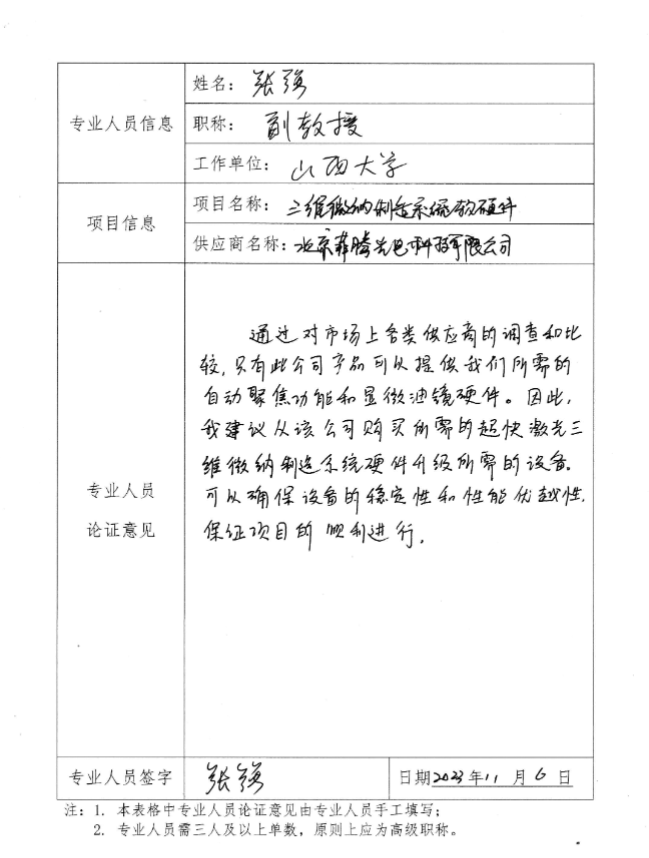 姓名：张强
专业人员信息
职称：副教授
工作单位：山西大学
项目信息
项目名称：三维微纳制造系统软硬件
供应商名称：北京菲腾光电科技有限公司
专业人员
论证意见
通过对市场上各类供应商的调查和比
较，只有此公司产品可以提供我们所需的
自动聚焦功能和显微油镜硬件。因此，
我建议从该公司购买所需的超快激光三
维微纳制造系统硬件升级所需的设备。
可以确保设备的稳定性和性能优越性，
保证项目的顺利进行。
专业人员签字 张强 日期2023年11月6日
注：1. 本表格中专业人员论证意见由专业人员手工填写；
2. 专业人员需三人及以上单数，原则上应为高级职称。